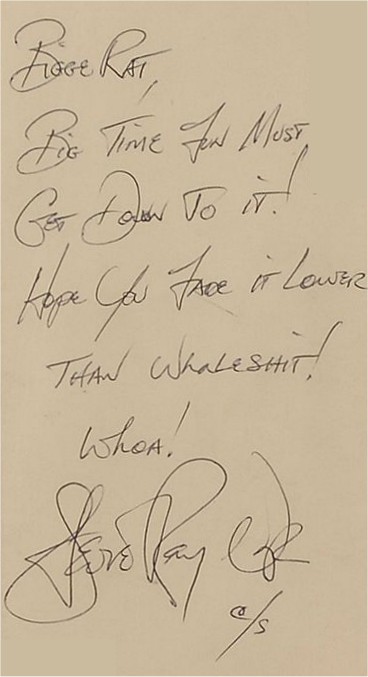 Bigge Rat,
Big Time Fun Must
Get Down To it!
Hope You Fade it Lower
Than Whaleshit!
Whoa!
Steve Ray
c/s